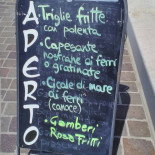 APERTO
• Triglie fritte
con polenta
• Capesante
nostrane ai ferri
o gratinate
• Cicale di mare
di ferri
(canoce)
• Gamberi
Rosa Fritti